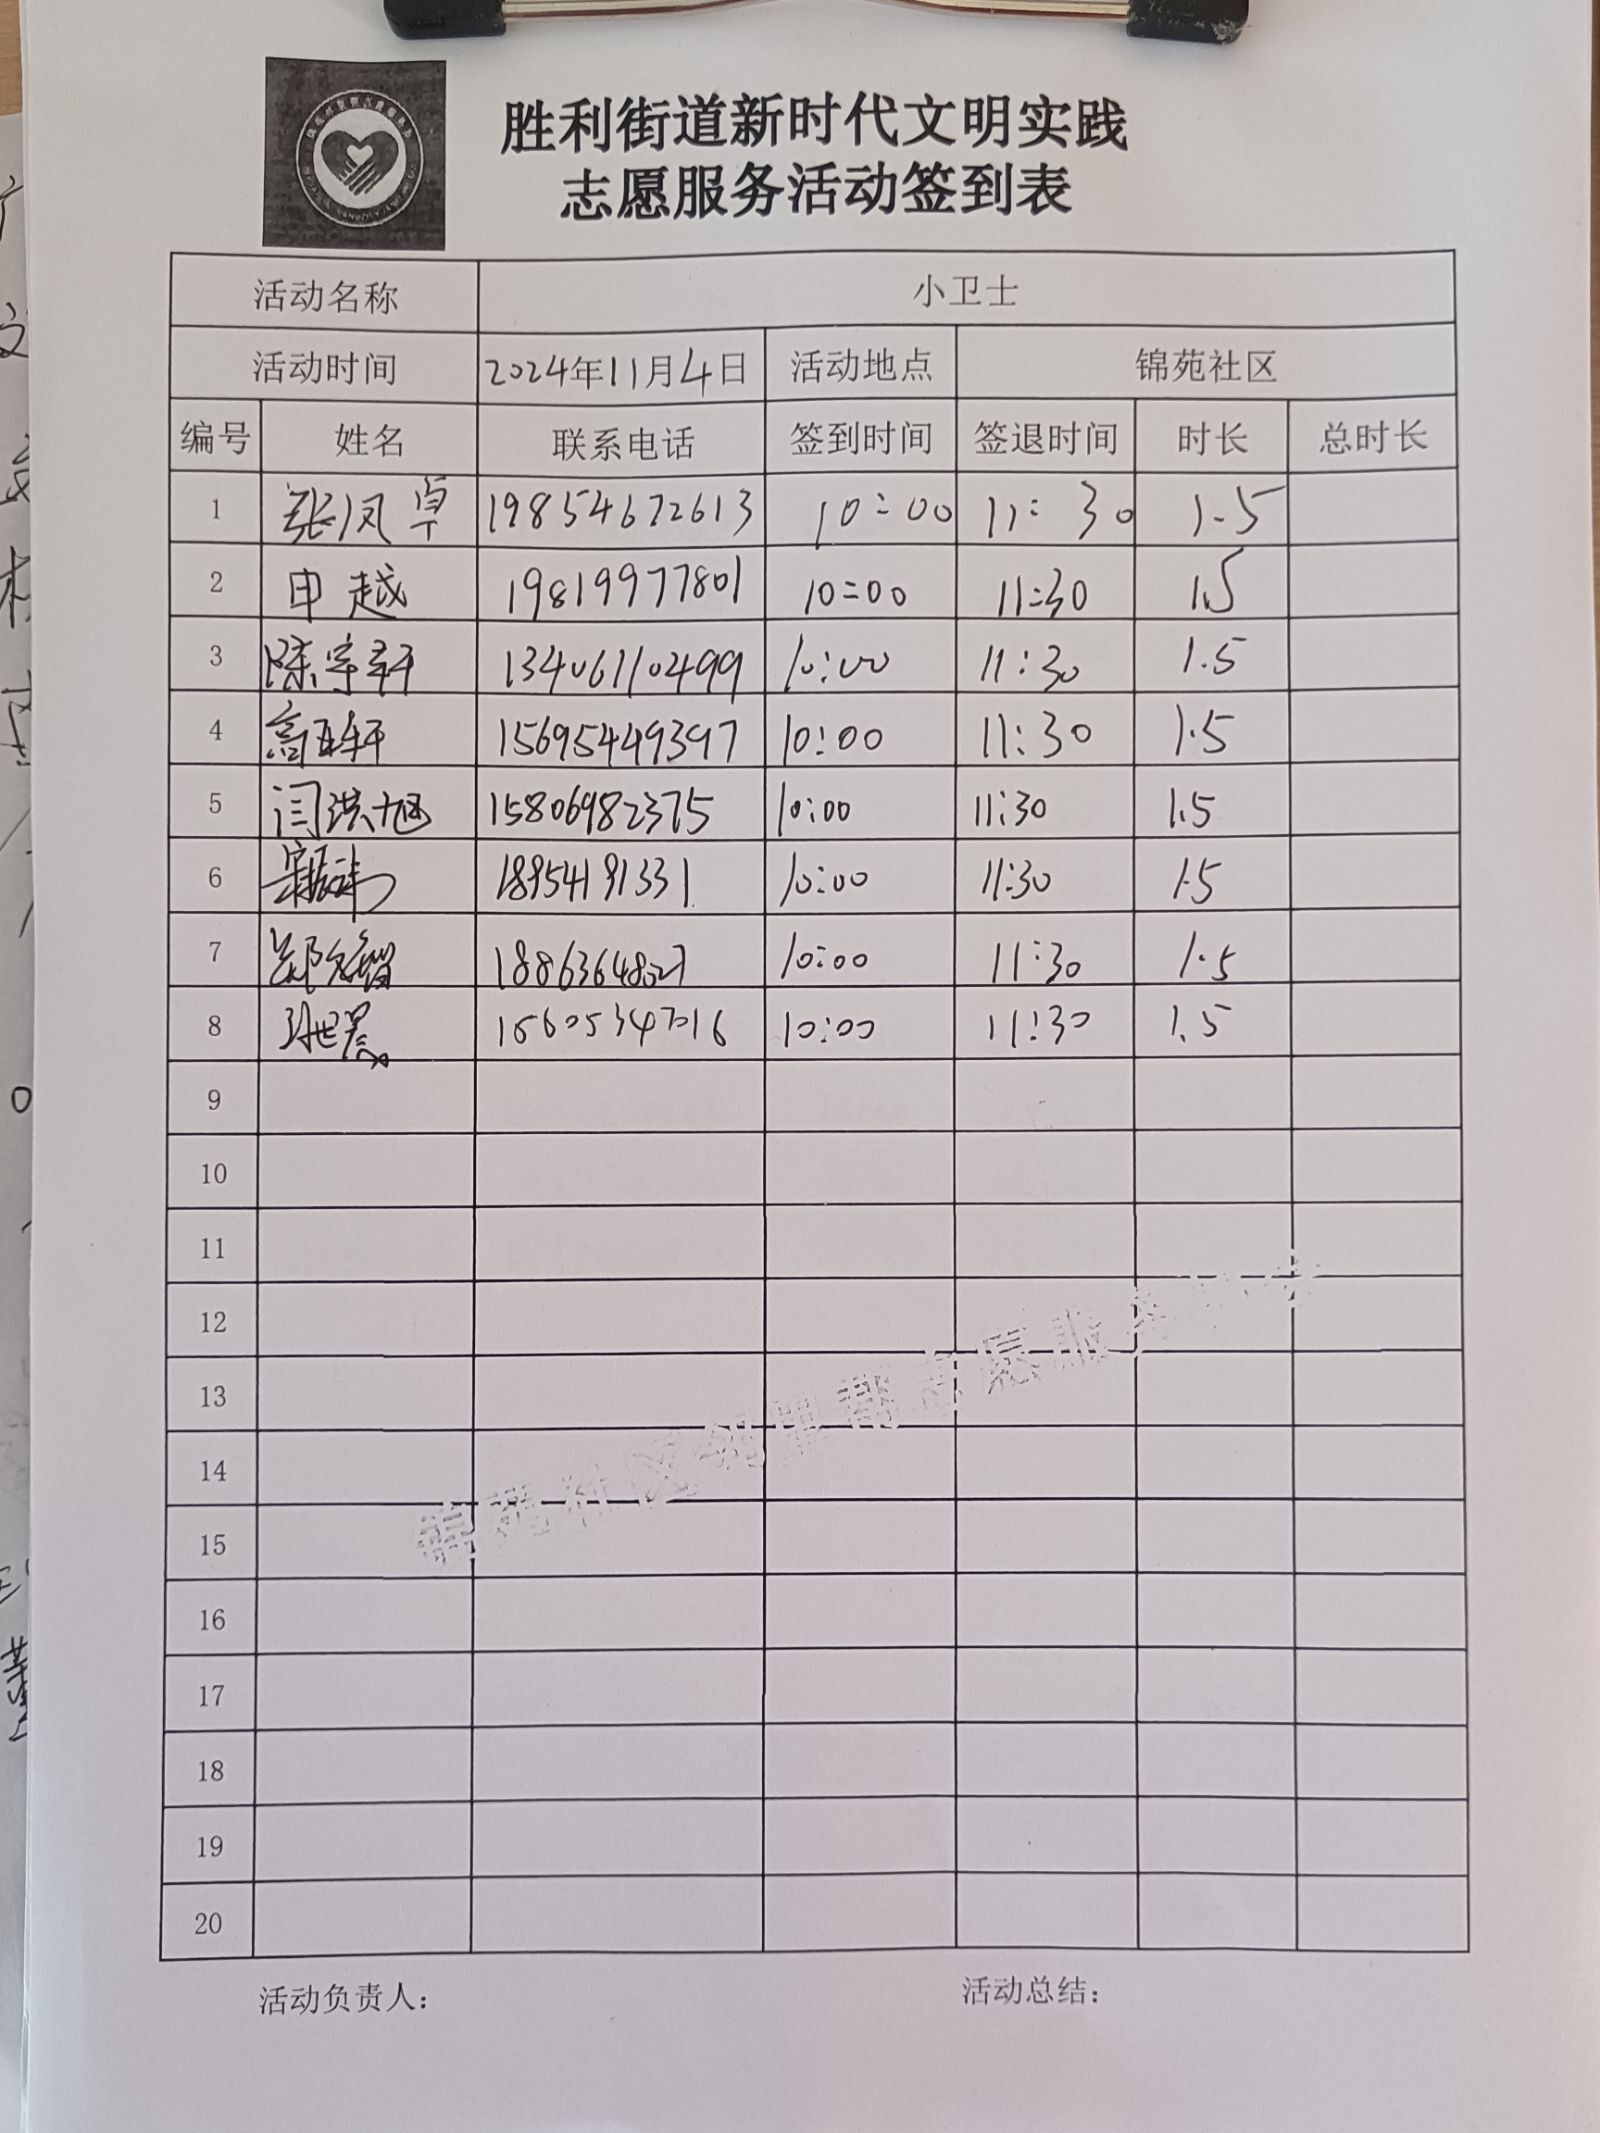 胜利街道新时代文明实践
志愿服务活动签到表
活动名称 小卫士
活动时间 2024年11月4日 活动地点 锦苑社区
编号 姓名 联系电话 签到时间 签退时间 时长 总时长
1 张凤卓 19854672613 10:00 11:30 1.5
2 申越 19819977801 10:00 11:30 1.5
3 陈宇轩 13406110499 10:00 11:30 1.5
4 15695449397 10:00 11:30 1.5
5 闫洪旭 15806982375 10:00 11:30 1.5
6 18954191331 10:00 11:30 1.5
7 10:00 11:30 1.5
8 10:00 11:30 1.5
9
10
11
12
13
14
15
16
17
18
19
20
锦苑社区邻里帮志愿服务
活动负责人: 活动总结: